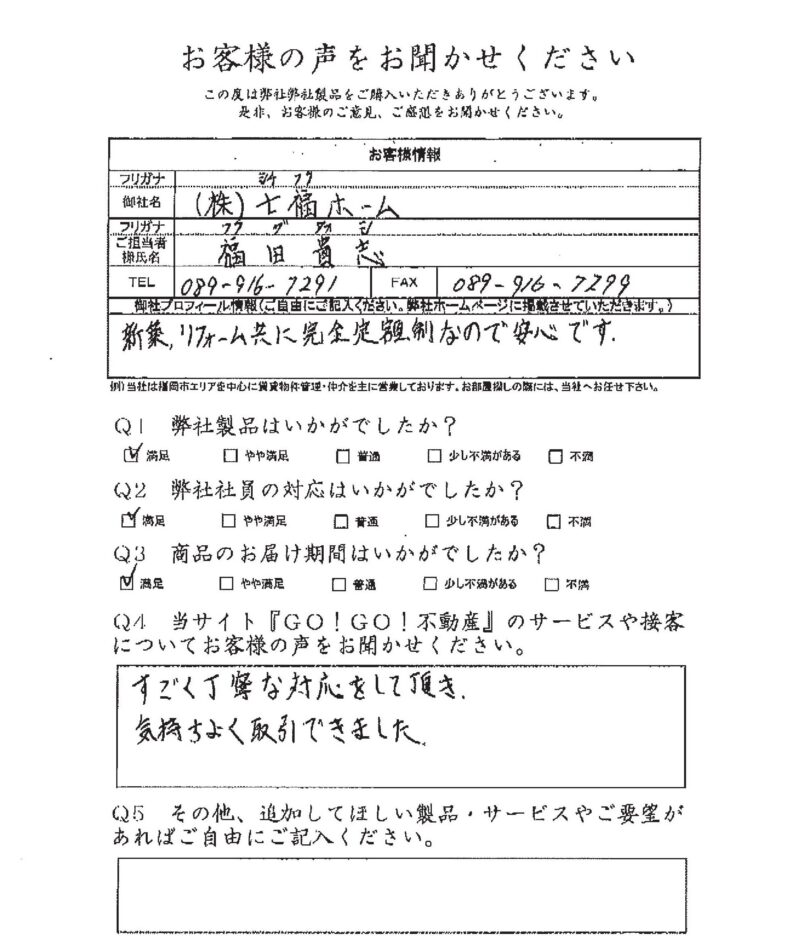 お客様の声をお聞かせください
この度は弊社弊社製品をご購入いただきありがとうございます。
是非、お客様のご意見、ご感想をお聞かせください。
お客様情報
フリガナ シチフク
御社名 (株)七福ホーム
フリガナ フクダ タカシ
ご担当者様氏名 福田貴志
TEL 089-916-7291 FAX 089-916-7299
御社プロフィール情報(ご自由にご記入ください。弊社ホームページに掲載させていただきます。)
新築,リフォーム共に完全定額制なので安心です.
例)当社は福岡市エリアを中心に賃貸物件管理・仲介を主に営業しております。お部屋探しの際には、当社へお任せ下さい。
Q1 弊社製品はいかがでしたか?
満足 やや満足 普通 少し不満がある 不満
Q2 弊社社員の対応はいかがでしたか?
満足 やや満足 普通 少し不満がある 不満
Q3 商品のお届け期間はいかがでしたか?
満足 やや満足 普通 少し不満がある 不満
Q4 当サイト『GO!GO!不動産』のサービスや接客
についてお客様の声をお聞かせください。
すごく丁寧な対応をして頂き.
気持ちよく取引できました.
Q5 その他、追加してほしい製品・サービスやご要望が
あればご自由にご記入ください。